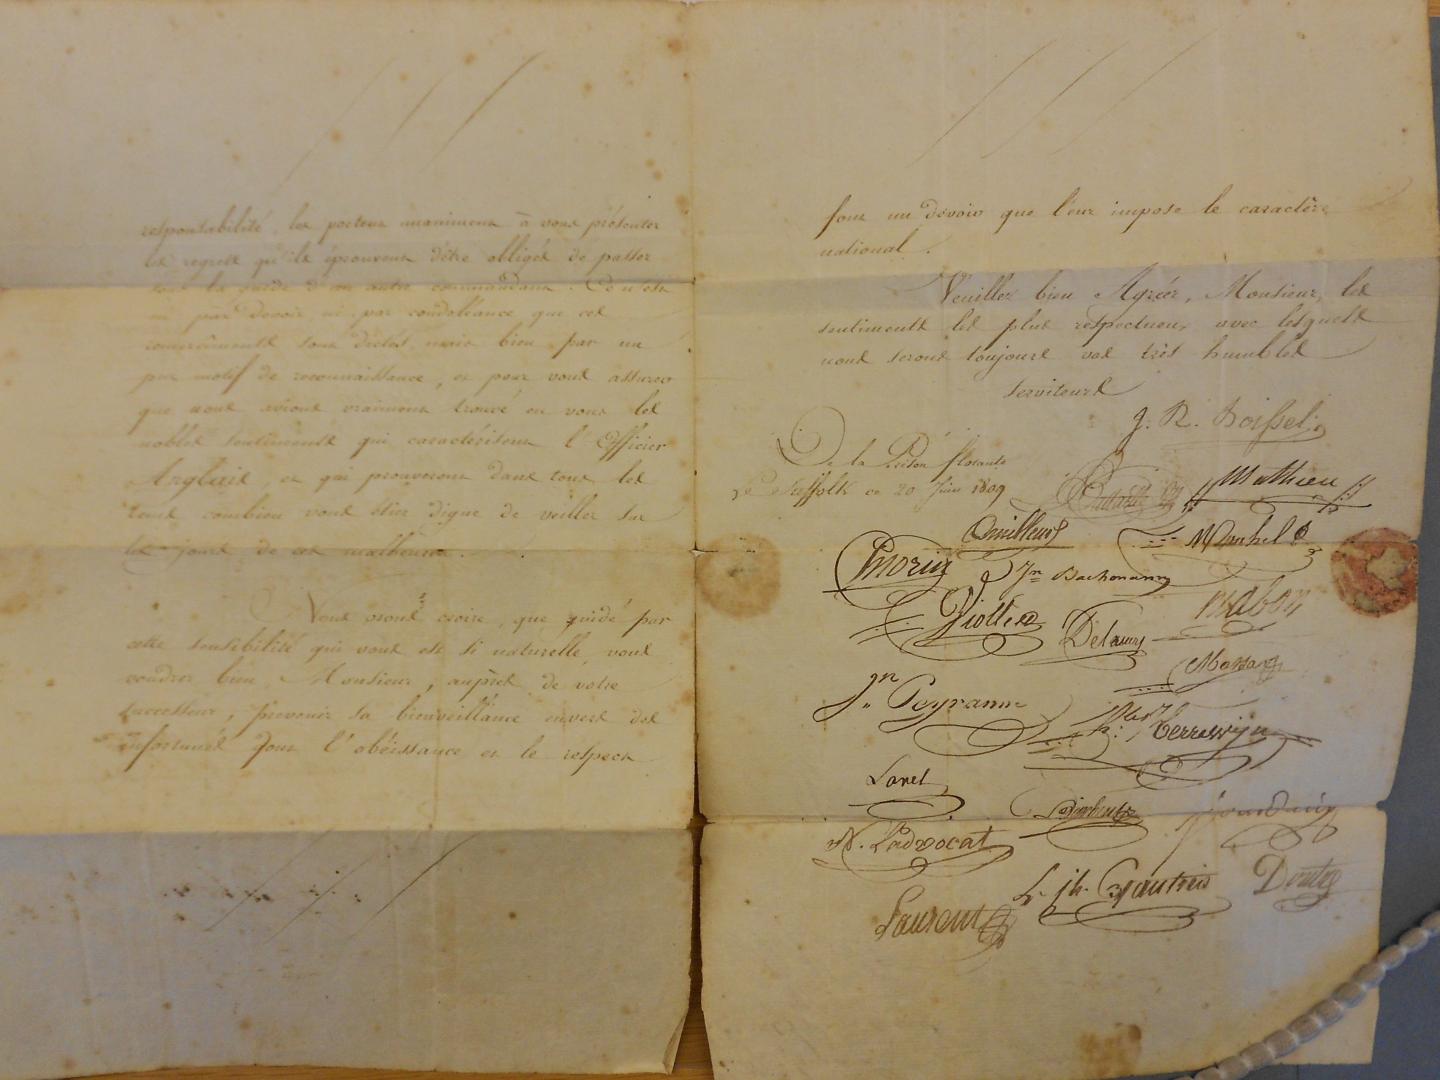 responsabilité, les porteux unanimement à vous présenter
les regrets qu'ils éprouvent d'être obligés de passer
sous la guide d'un autre commandant. Ce n'est
ni par devoir ni par condoléance que ces
sont dictés, mais bien par un
pur motif de reconnaissance, et pour vous assurer
que nous avions vraiment trouvé en vous les
nobles sentiments qui caractérisent l'Officier
Anglais, et qui prouveront dans tous les
tems combien vous étiez digne de veiller sur
les jours de ces malheureux.
Nous osons croire, que guidé par
cette sensibilité qui vous est si naturelle, vous
voudrez bien, Monsieur, auprès de votre
successeur, prévenir sa bienveillance envers des
infortunés dont l'obéissance et le respect
font un devoir que leur impose le caractère
national.
Veuillez bien Agréer, Monsieur, les
sentiments les plus respectueux avec lesquels
nous serons toujours vos très humbles
serviteurs
J. R. Boissel
De la Prison flotante
Le Suffolk ce 20 Juin 1809
Mathieu
Morin
Jn Bachmann
Viollier
Delaunay
Mabon
Jn Peyranne
Lanel
N. Ladvocat
Jourdain
Laurent
Gautrais
Doutre